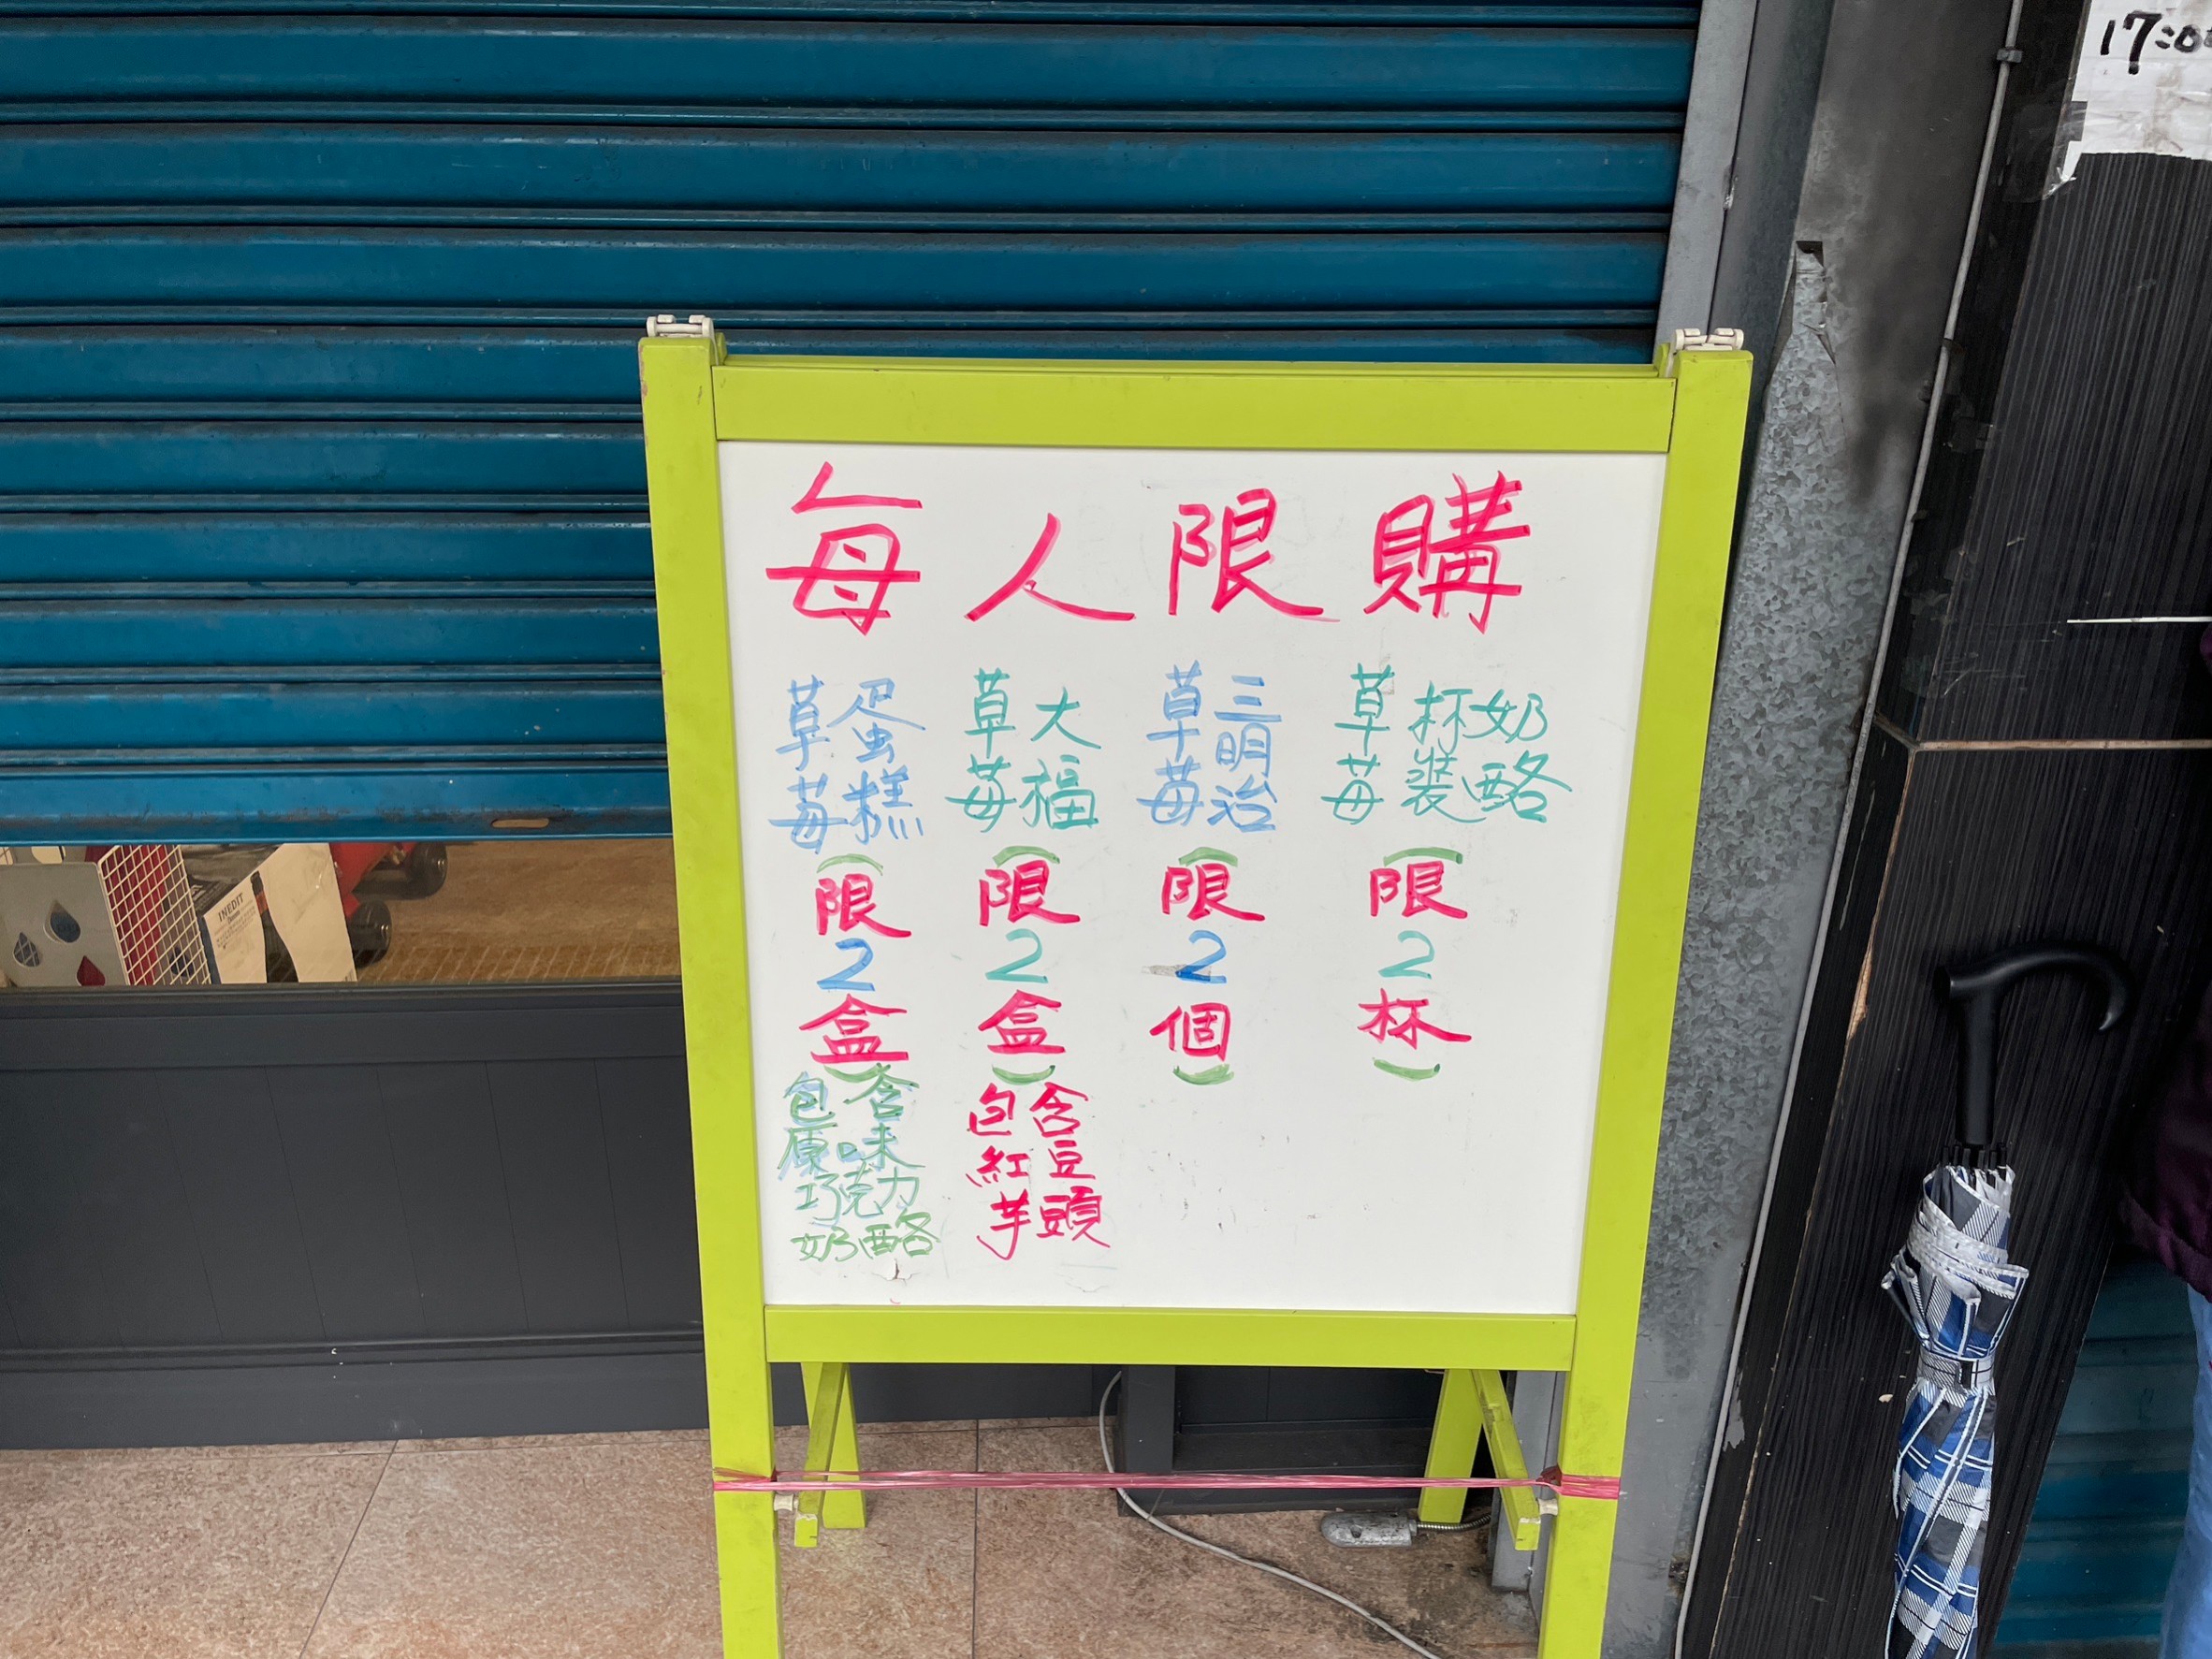 每人限購
草莓蛋糕
(限2盒)
包含
原味
巧克力
奶酪
草莓大福
(限2盒)
包含
紅豆
芋頭
草莓三明治
(限2個)
草莓杯裝奶酪
(限2杯)
INEDIT